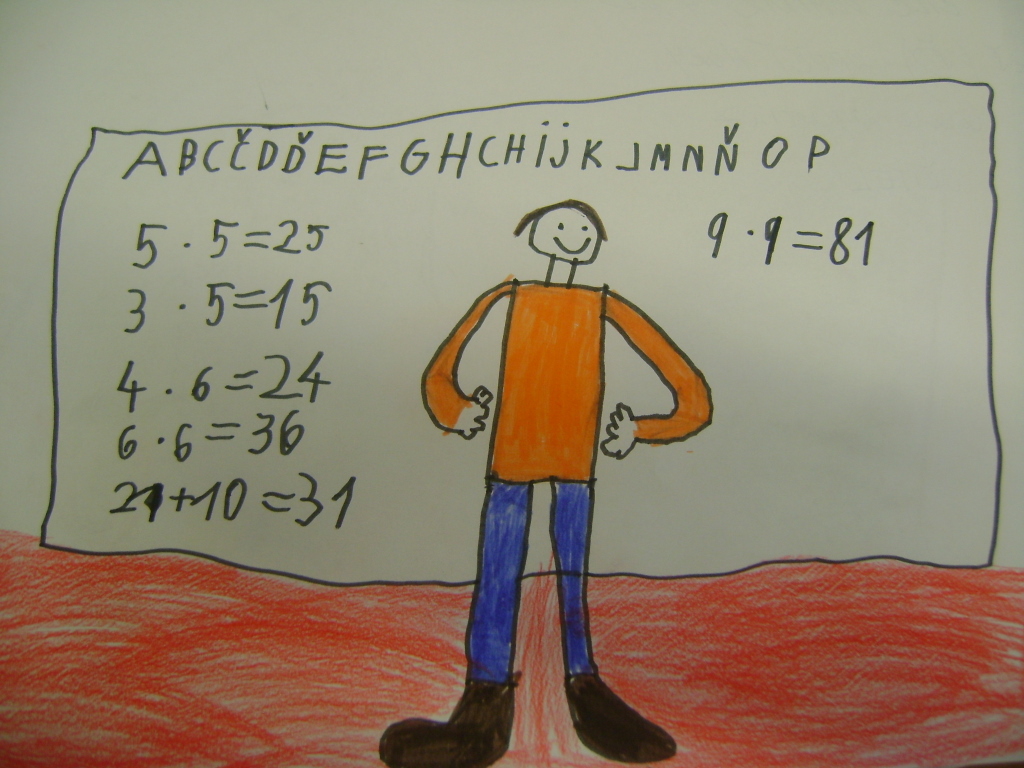 A B C Č D Ď E F G H CH i j K L M N Ň O P
5 · 5 = 25
9 · 9 = 81
3 · 5 = 15
4 · 6 = 24
6 · 6 = 36
21 + 10 = 31